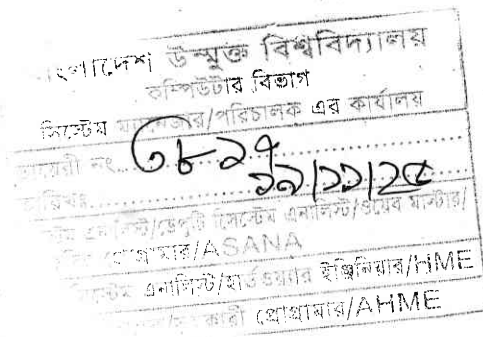 বাংলাদেশ উন্মুক্ত বিশ্ববিদ্যালয়
কম্পিউটার বিভাগ
সিস্টেম ম্যানেজার/পরিচালক এর কার্যালয়
ডায়েরী নং... ৩৮২৭
তারিখঃ ১৯/১১/২৫
সিস্টেম এনালিস্ট/ডেপুটি সিস্টেম এনালিস্ট/ওয়েব মাস্টার/
প্রোগ্রামার/ASANA
এনালিস্ট/হার্ডওয়্যার ইঞ্জিনিয়ার/HME
সহকারী প্রোগ্রামার/AHME